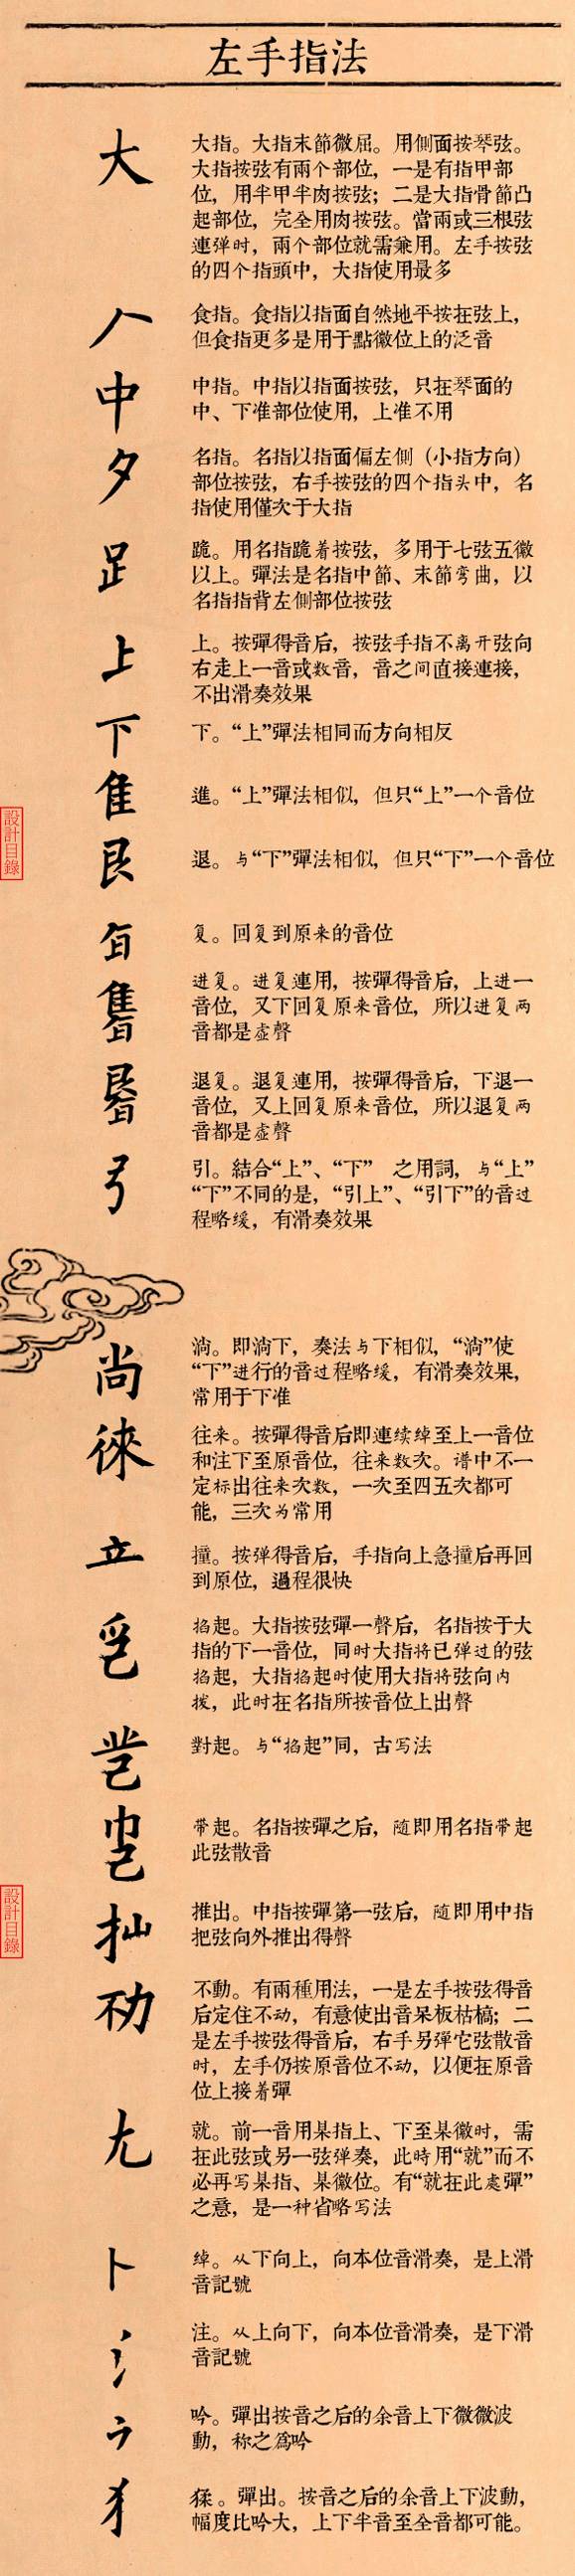 左手指法
大
大指。大指末節微屈。用側面按琴弦。
大指按弦有兩个部位，一是有指甲部
位，用半甲半肉按弦；二是大指骨節凸
起部位，完全用肉按弦。當兩或三根弦
連弹时，兩个部位就需兼用。左手按弦
的四个指頭中，大指使用最多
𠂉
食指。食指以指面自然地平按在弦上，
但食指更多是用于點徽位上的泛音
中
中指。中指以指面按弦，只在琴面的
中、下准部位使用，上准不用
夕
名指。名指以指面偏左側（小指方向）
部位按弦，右手按弦的四个指头中，名
指使用僅次于大指
跪。用名指跪着按弦，多用于七弦五徽
以上。彈法是名指中節、末節弯曲，以
名指指背左側部位按弦
上
上。按彈得音后，按弦手指不离开弦向
右走上一音或数音，音之间直接連接，
不出滑奏效果
下
下。“上”彈法相同而方向相反
隹
進。“上”彈法相似，但只“上”一个音位
艮
退。与“下”彈法相似，但只“下”一个音位
复。回复到原来的音位
进复。进复連用，按彈得音后，上进一
音位，又下回复原来音位，所以进复两
音都是虚聲
退复。退复連用，按彈得音后，下退一
音位，又上回复原来音位，所以退复两
音都是虚聲
弓
引。結合“上”、“下” 之用詞，与“上”
“下”不同的是，“引上”、“引下”的音过
程略缓，有滑奏效果
尚
淌。即淌下，奏法与下相似，“淌”使
“下”进行的音过程略缓，有滑奏效果，
常用于下准
徠
往来。按彈得音后即連续绰至上一音位
和注下至原音位，往来数次。谱中不一
定标出往来次数，一次至四五次都可
能，三次为常用
立
撞。按弹得音后，手指向上急撞后再回
到原位，過程很快
掐起。大指按弦彈一聲后，名指按于大
指的下一音位，同时大指将已弹过的弦
掐起，大指掐起时使用大指将弦向内
拨，此时在名指所按音位上出聲
對起。与“掐起”同，古写法
带起。名指按彈之后，随即用名指带起
此弦散音
推出。中指按彈第一弦后，随即用中指
把弦向外推出得聲
不動。有兩種用法，一是左手按弦得音
后定住不动，有意使出音呆板枯槁；二
是左手按弦得音后，右手另弹它弦散音
时，左手仍按原音位不动，以便在原音
位上接着彈
尢
就。前一音用某指上、下至某徽时，需
在此弦或另一弦弹奏，此時用“就”而不
必再写某指、某徽位。有“就在此處彈”
之意，是一种省略写法
卜
绰。从下向上，向本位音滑奏，是上滑
音記號
氵
注。从上向下，向本位音滑奏，是下滑
音記號
吟。彈出按音之后的余音上下微微波
動，称之為吟
犭
猱。彈出。按音之后的余音上下波動，
幅度比吟大，上下半音至全音都可能。
設計目錄
設計目錄